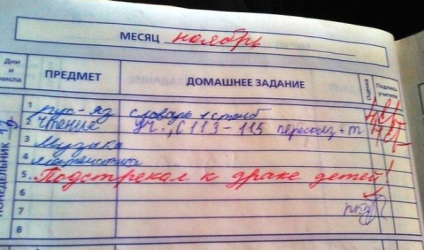 МЕСЯЦ ноябрь
Дни и числа ПРЕДМЕТ ДОМАШНЕЕ ЗАДАНИЕ Подпись учителя
ПОНЕДЕЛЬНИК
1 рус-яз словарь 1 столб
2 Чтение уч., с 113-115 пересказ + т
3 Музыка
4 Математика
5. Подстрекал к драке детей!
6
7
8